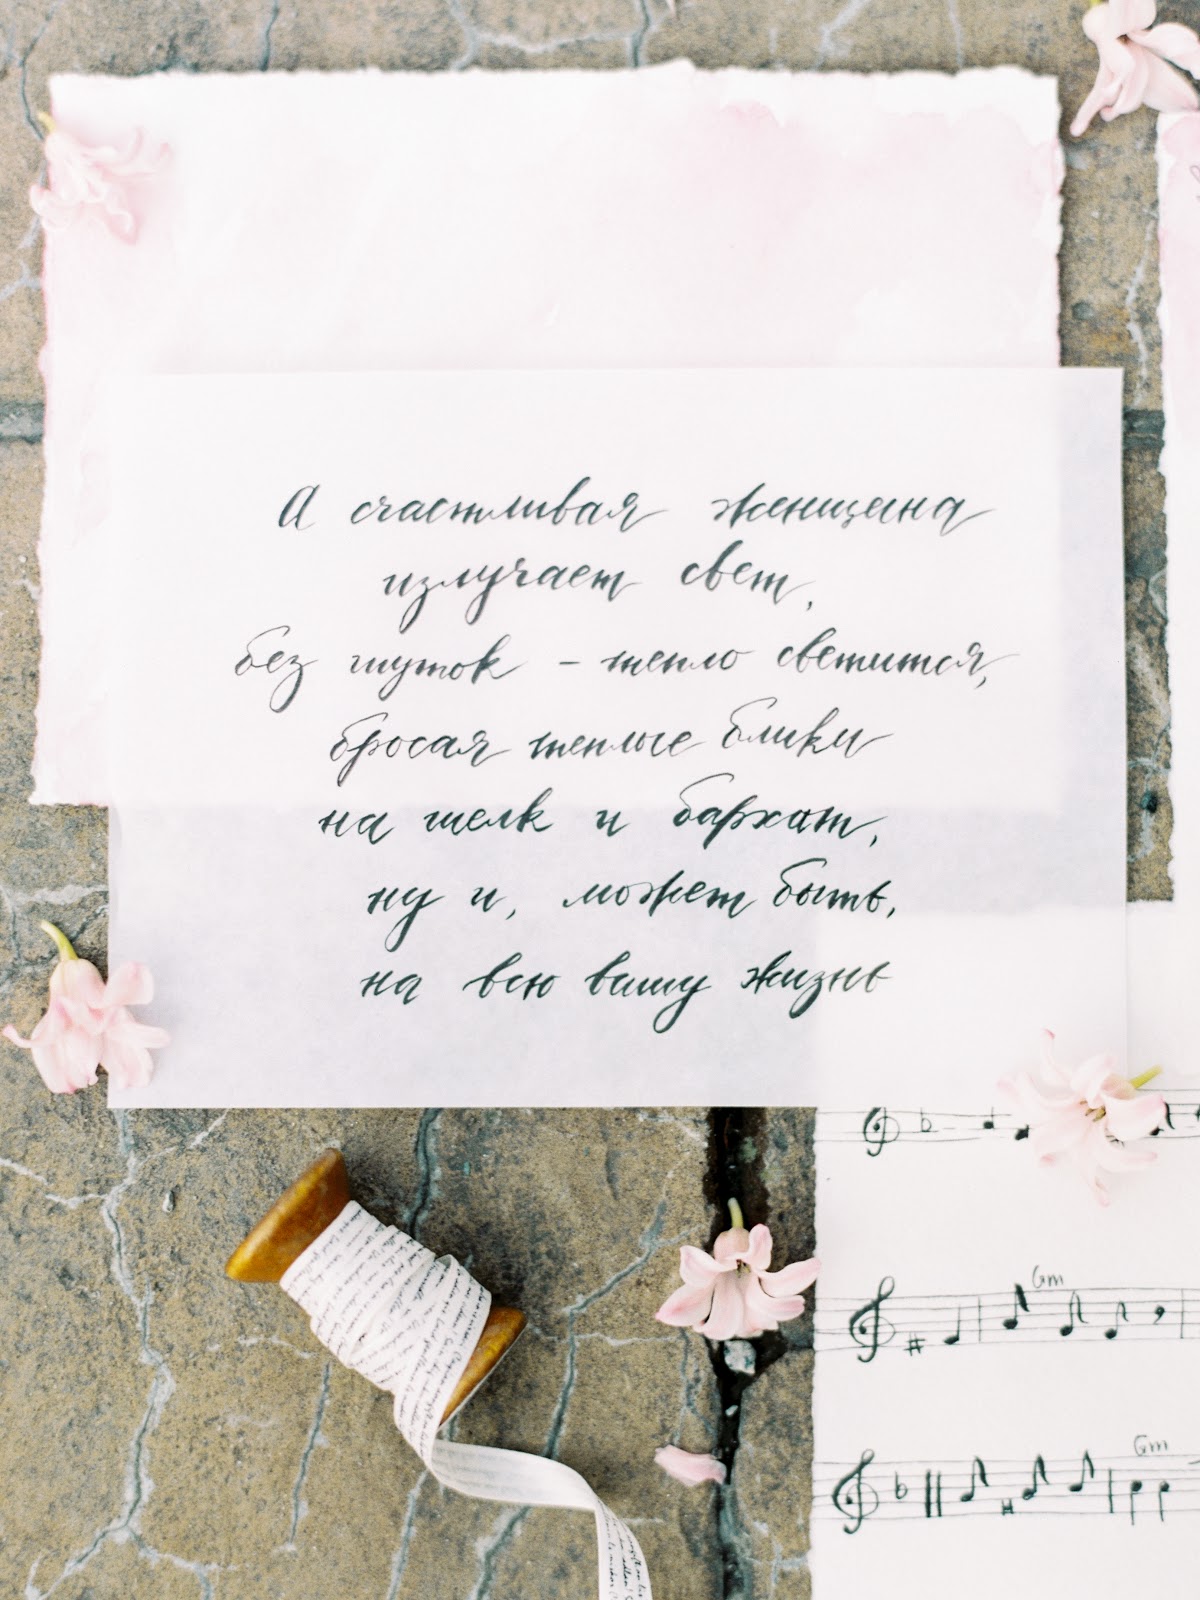 А счастливая женщина
излучает свет,
без шуток – тепло светится,
бросая теплые блики
на шелк и бархат,
ну и, может быть,
на всю вашу жизнь
Gm
Gm